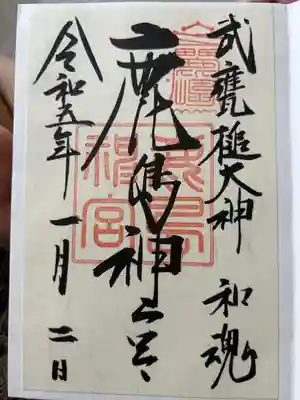 武甕槌大神 和魂
鹿島神宮
鹿島
神宮
令和五年一月二日